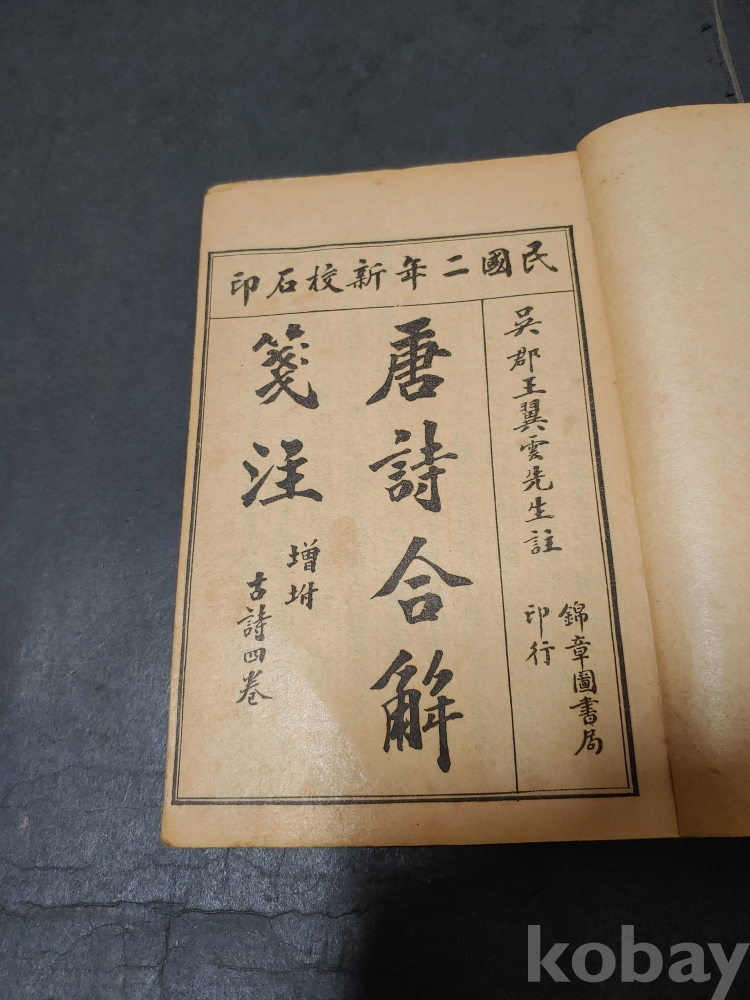 民國二年新校石印
吳郡王翼雲先生註
錦章圖書局
印行
唐詩合解
箋注
增坿
古詩四卷
kobay